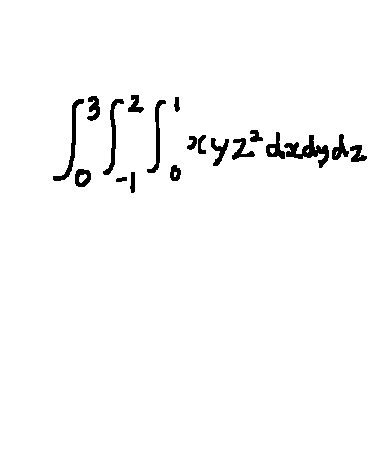 ∫₀³ ∫₋₁² ∫₀¹ xyz² dxdydz